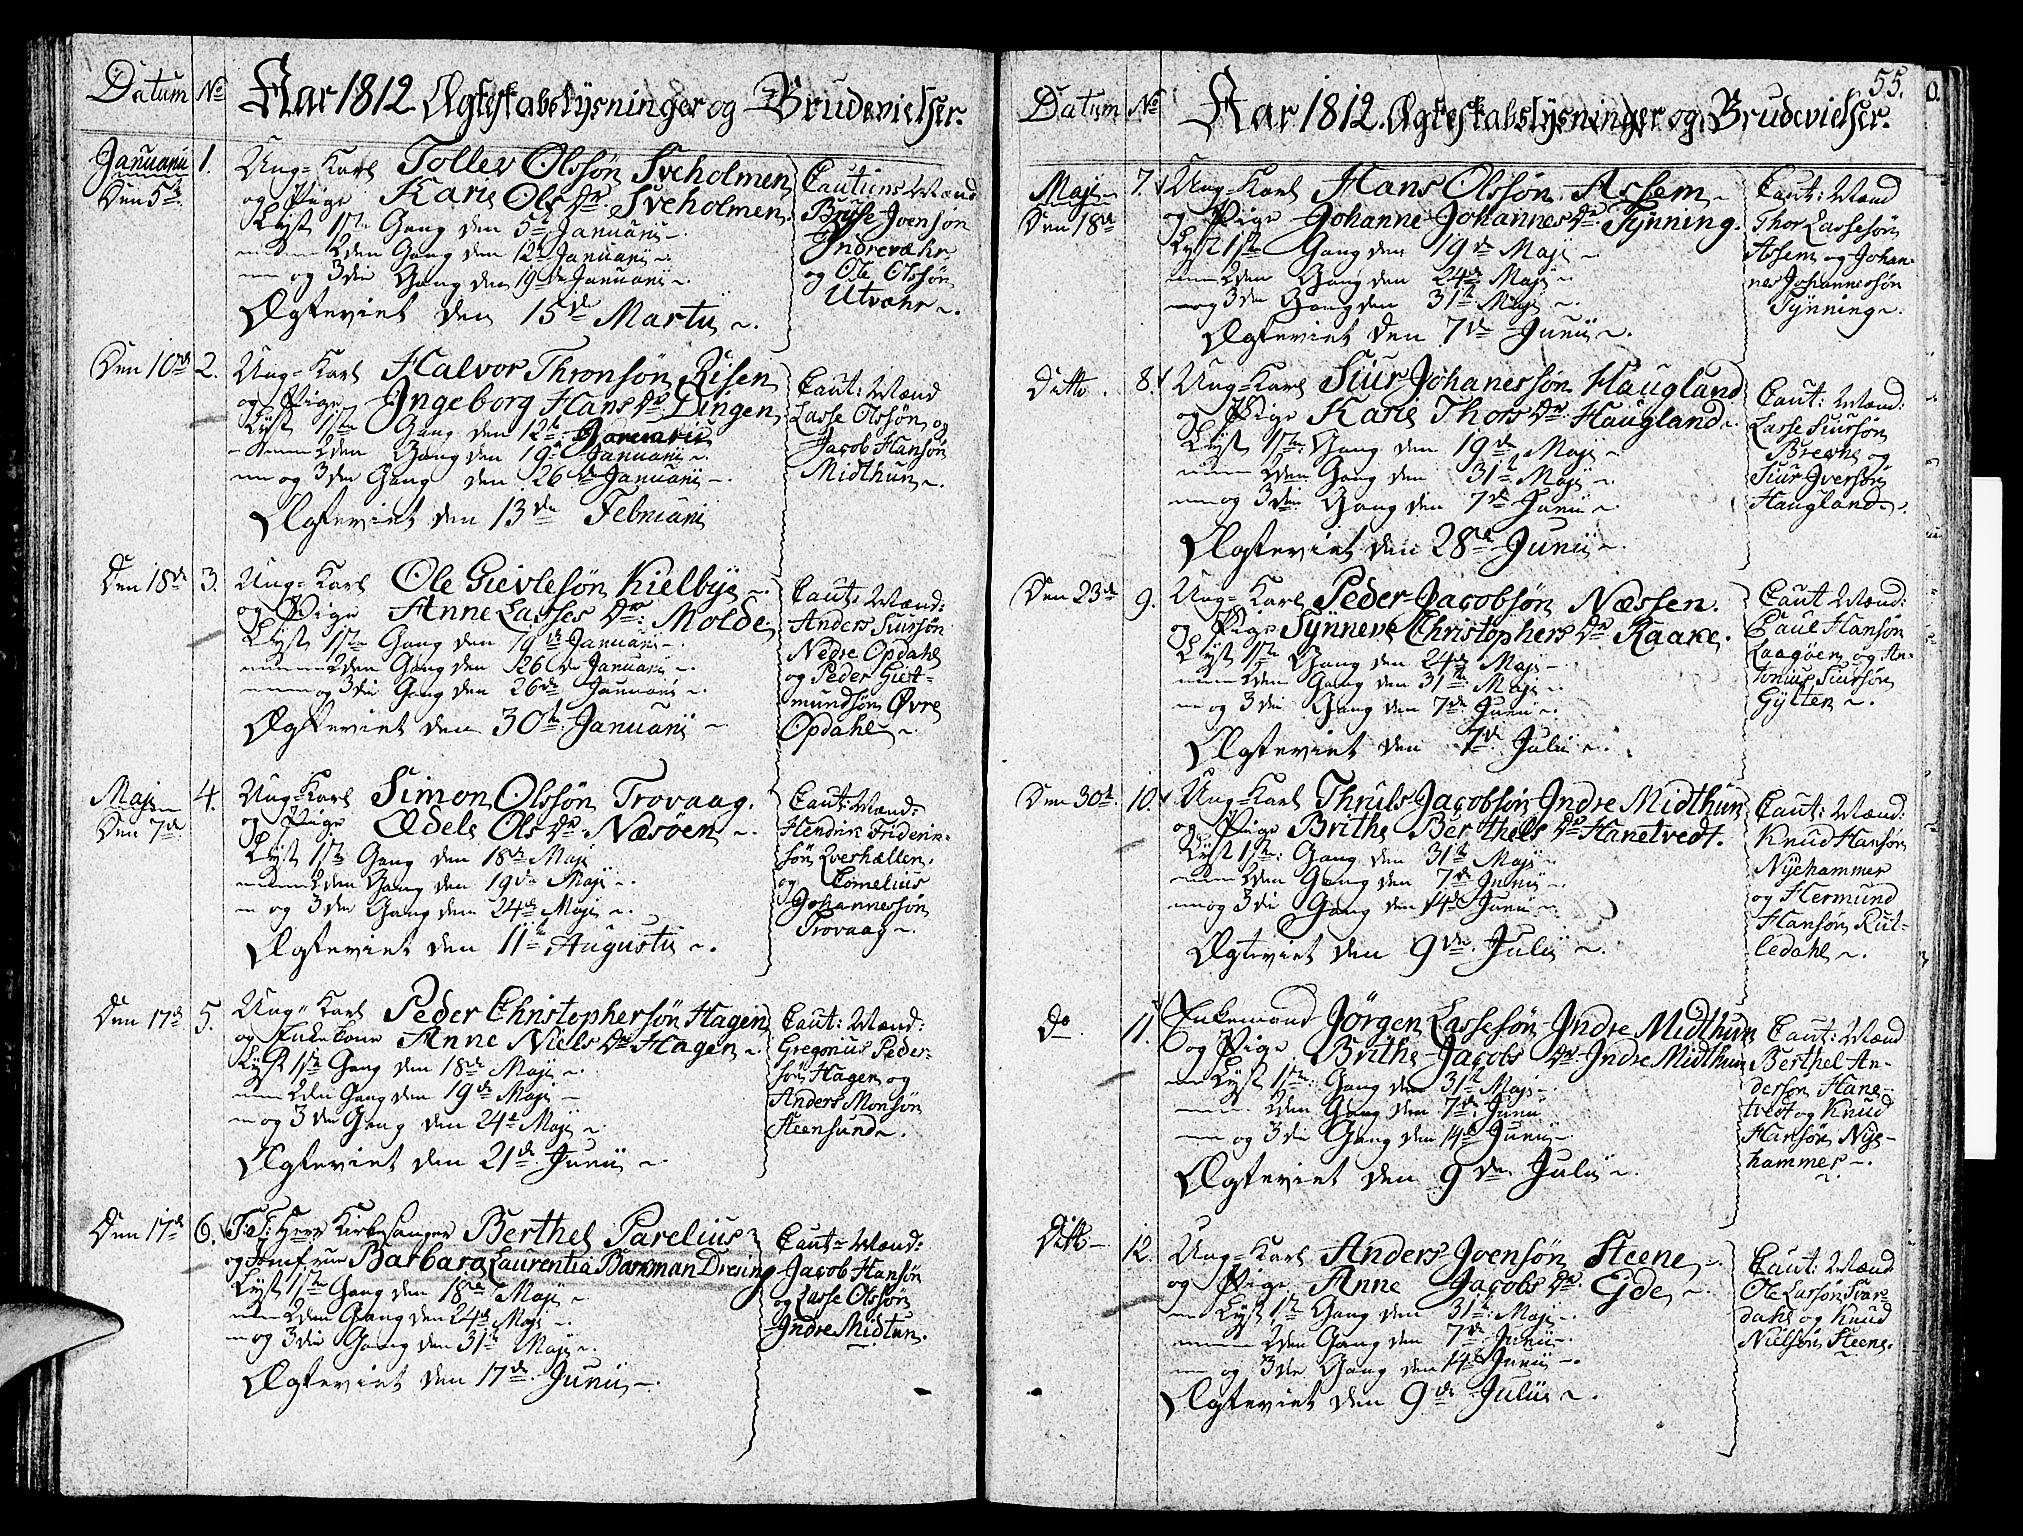 Datum No Aar 1812 Ægteskabslysninger og Brudevielser.
Januarii 1. Ung-Karl Tollev Olssön Sveholmen
Den 5te og Pige Kari Ols Dr. Sveholmen.
Lyst 1ste Gang den 5te Januarii
2den Gang den 12te Januarii
og 3die Gang den 19de Januarii
Ægteviet den 15de Martii
Cautions Mænd
Brüse Ivensön
Indrevæhr
og Ole Olssön
Utvæhr
Den 10de 2. Ung-Karl Halvor Thronsön Risen
og Pige Ingeborg Hans Dr. Dingen
Lyst 1ste Gang den 12te Januarii
2den Gang den 19de Januarii
og 3die Gang den 26de Januarii
Ægteviet den 13de Februarii
Caut: Mænd
Lasse Olssön og
Jacob Hansön
Midthun
Den 18de 3. Ung-Karl Ole Gievlesön Kielbye
og Pige Anne Lasses Dr: Molde
Lyst 1ste Gang den 19de Januarii
2den Gang den 26de Januarii
og 3die Gang den 26de Januarii
Ægteviet den 30te Januarii
Caut: Mænd:
Anders Siursön
Nedre Opdahl
og Peder Giet-
mundsön Øvre
Opdahl
Maji 4. Ung-Karl Simon Olssön Trovaag.
Den 7de og Pige Adele Ols Dr. Næsöen
Lyst 1ste Gang den 18de Maji
2den Gang den 19de Maji
og 3die Gang den 24de Maji
Ægteviet den 11te Augusti
Caut: Mænd:
Hendrik Friderik-
sön Qverhællen.
og Cornelius
Johannessön
Trovaag
Den 17de 5. Ung Karl Peder Christophersön Hagen
og Enkekone Anne Niels Dr Hagen
Lyst 1ste Gang den 18de Maji
2den Gang den 19de Maji
og 3die Gang den 24de Maji
Ægteviet den 21de Junii
Caut: Mænd:
Gregorius Peder-
sön Hagen og
Anders Monsön
Steensund
Den 17de 6. Herr Kirkesanger Berthel Parelius
og Jomfrue Barbara Laurentia Barkman Dresing
Lyst 1ste Gang den 18de Maji
2den Gang den 24de Maji
og 3die Gang den 31te Maji
Ægteviet den 17de Junii
Caut: Mænd:
Jacob Hansön
og Lasse Olssön
Indre Midtun.
55.
Datum No Aar 1812. Ægteskabslysninger og Brudevielser.
Maji 7. Ung-Karl Hans Olssön Assem
Den 18de og Pige Johanne Johannes Dr Tÿnning.
Lyst 1ste Gang den 19de Maji
2den Gang den 24de Maji
og 3die Gang den 31te Maji
Ægteviet den 7de Junii
Caut: Mænd
Thor Lassesön
Assem og Johan-
nes Johannessön
Tÿnning
Ditto. 8. Ung-Karl Siur Johanessön Haugland
og Pige Kari Thors Dr. Haugland
Lyst 1ste Gang den 19de Maji
2den Gang den 31te Maji
og 3die Gang den 7de Junii
Ægteviet den 28de Junii
Caut: Mænd:
Lasse Siursön
Brecke og
Siur Iversön
Haugland
Den 23de 9. Ung-Karl Peder Jacobsön Næssen.
og Pige Sÿnneve Christophers Dr Kaare.
Lyst 1ste Gang den 24de Maji
2den Gang den 31te Maji
og 3die Gang den 7de Junii
Ægteviet den 7de Julii
Caut Mænd:
Paul Hansön
Laagöen og An-
tonius Siursön
Gÿlten
Den 30te 10. Ung-Karl Thruls Jacobsön Indre Midthun
og Pige Brithe Berthels Dr Hanetvedt.
Lyst 1ste Gang den 31te Maji
2den Gang den 7de Junii
og 3die Gang den 14de Junii
Ægteviet den 9de Julii
Caut: Mænd:
Knud Hansön
Nyehammer
og Hermund
Hansön Rut-
ledahl
Do 11. Enkemand Jörgen Lassesön Indre Midthun
og Pige Brithe Jacobs Dr Indre Midthun
Lyst 1ste Gang den 31te Maji
2den Gang den 7de Junii
og 3die Gang den 14de Junii
Ægteviet den 9de Julii
Caut: Mænd
Berthel An-
dersön Hane-
tvedt og Knud
Hansön Nye-
hammer
Ditto 12. Ung-Karl Anders Ivensön Steene
og Pige Anne Jacobs Dr. Eide
Lyst 1ste Gang den 31te Maji
2den Gang den 7de Junii
og 3die Gang den 14de Junii
Ægteviet den 9de Julii
Caut: Mænd
Ole Larsön Svar-
dahl og Knud
Nielsön Steene.